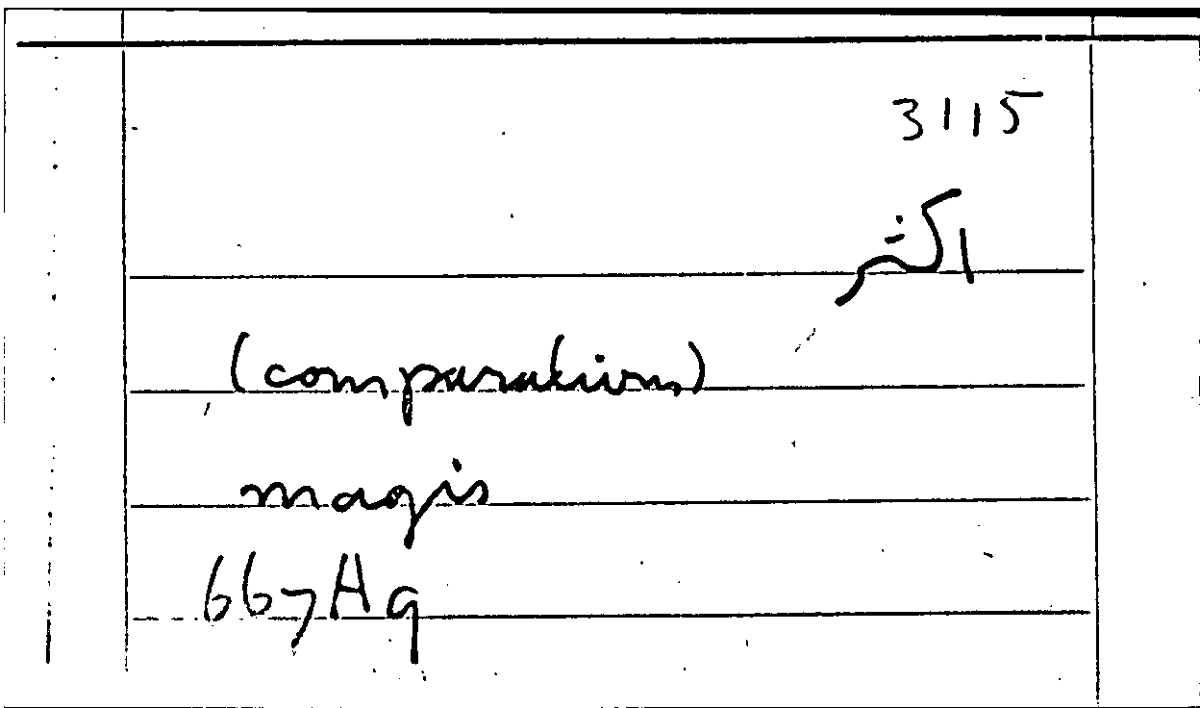 3115
اكثر
(comparativm)
magis
667 Aq